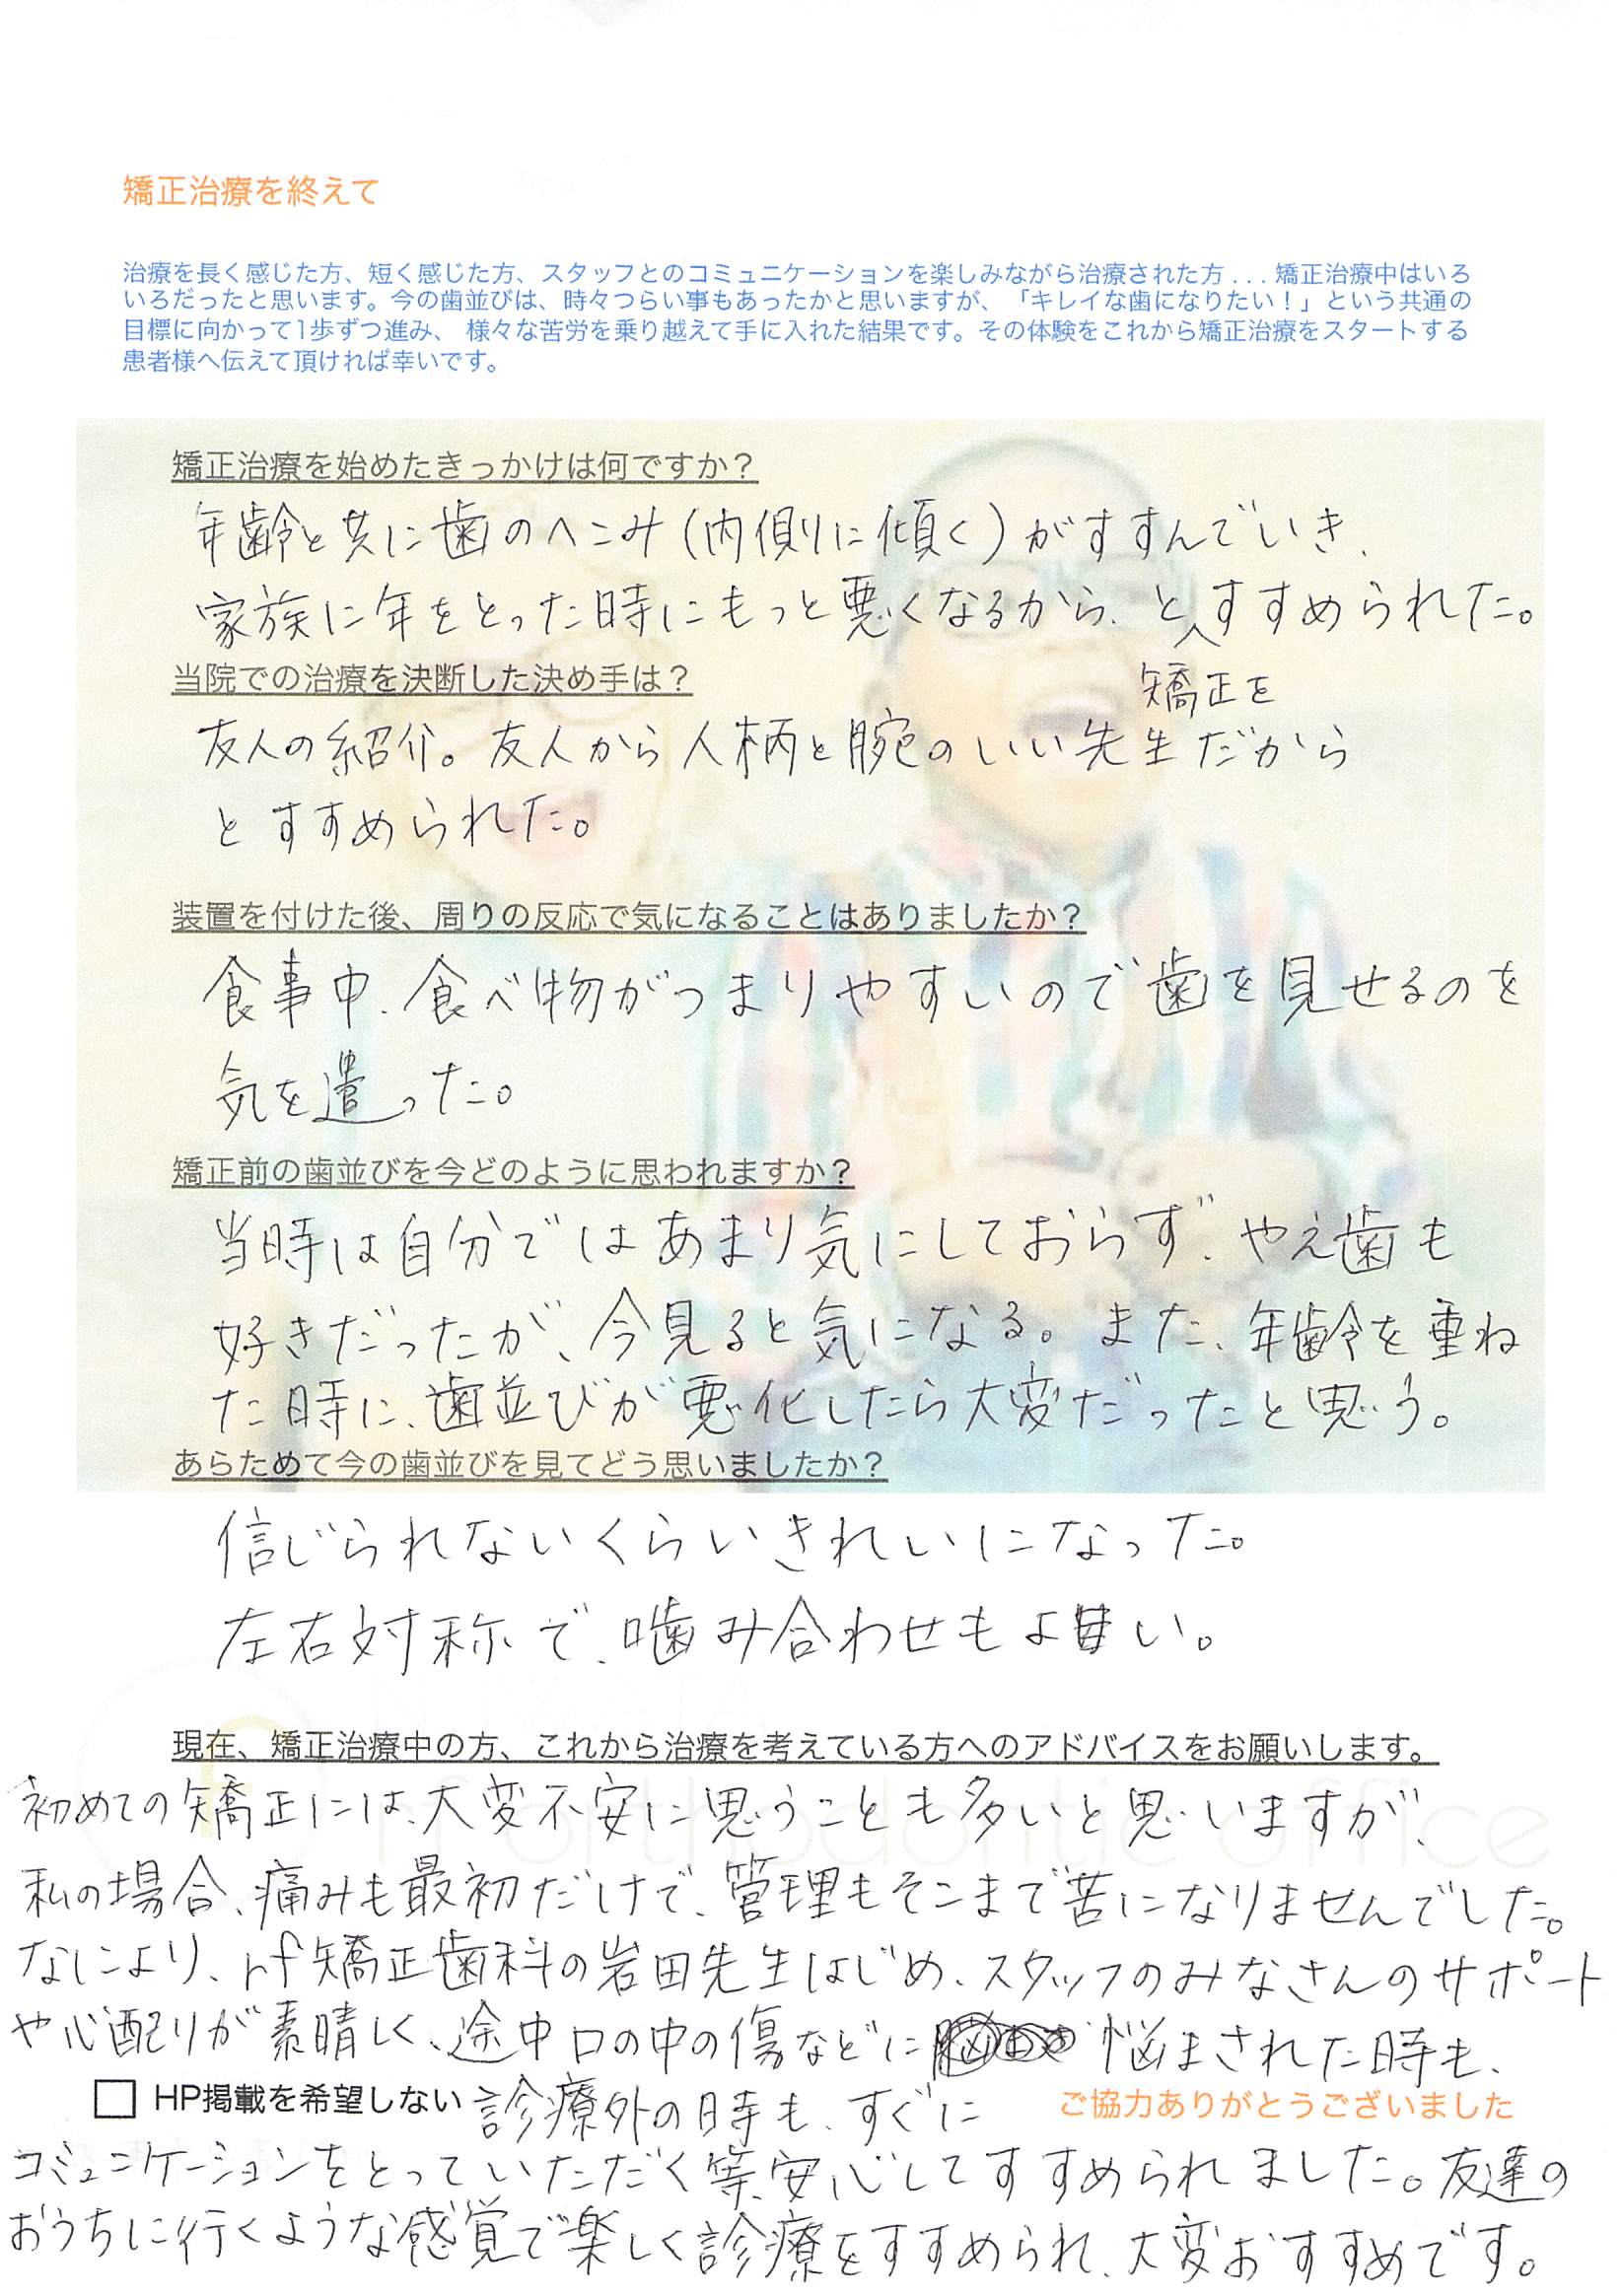 矯正治療を終えて
治療を長く感じた方、短く感じた方、スタッフとのコミュニケーションを楽しみながら治療された方...矯正治療中はいろ
いろだったと思います。今の歯並びは、時々つらい事もあったかと思いますが、「キレイな歯になりたい！」という共通の
目標に向かって1歩ずつ進み、 様々な苦労を乗り越えて手に入れた結果です。その体験をこれから矯正治療をスタートする
患者様へ伝えて頂ければ幸いです。
矯正治療を始めたきっかけは何ですか？
年齢と共に歯のへこみ(内側に傾く)がすすんでいき、
家族に年をとった時にもっと悪くなるから、と矯正をすすめられた。
当院での治療を決断した決め手は？
友人の紹介。友人から人柄と腕のいい先生だから
とすすめられた。
装置を付けた後、周りの反応で気になることはありましたか？
食事中、食べ物がつまりやすいので歯を見せるのを
気を遣った。
矯正前の歯並びを今どのように思われますか？
当時は自分ではあまり気にしておらず、やえ歯も
好きだったが、今見ると気になる。また、年齢を重ね
た時に、歯並びが悪化したら大変だったと思う。
あらためて今の歯並びを見てどう思いましたか？
信じられないくらいきれいになった。
左右対称で、噛み合わせもよい。
現在、矯正治療中の方、これから治療を考えている方へのアドバイスをお願いします。
初めての矯正には、大変不安に思うことも多いと思いますが、
私の場合、痛みも最初だけで、管理もそこまで苦になりませんでした。
なにより、rf矯正歯科の岩田先生はじめ、スタッフのみなさんのサポート
や心配りが素晴しく、途中口の中の傷などに悩まされた時も、
HP掲載を希望しない 診療外の時も、すぐに ご協力ありがとうございました
コミュニケーションをとっていただく等、安心してすすめられました。友達の
おうちに行くような感覚で楽しく診療をすすめられ、大変おすすめです。
rf orthodontic office